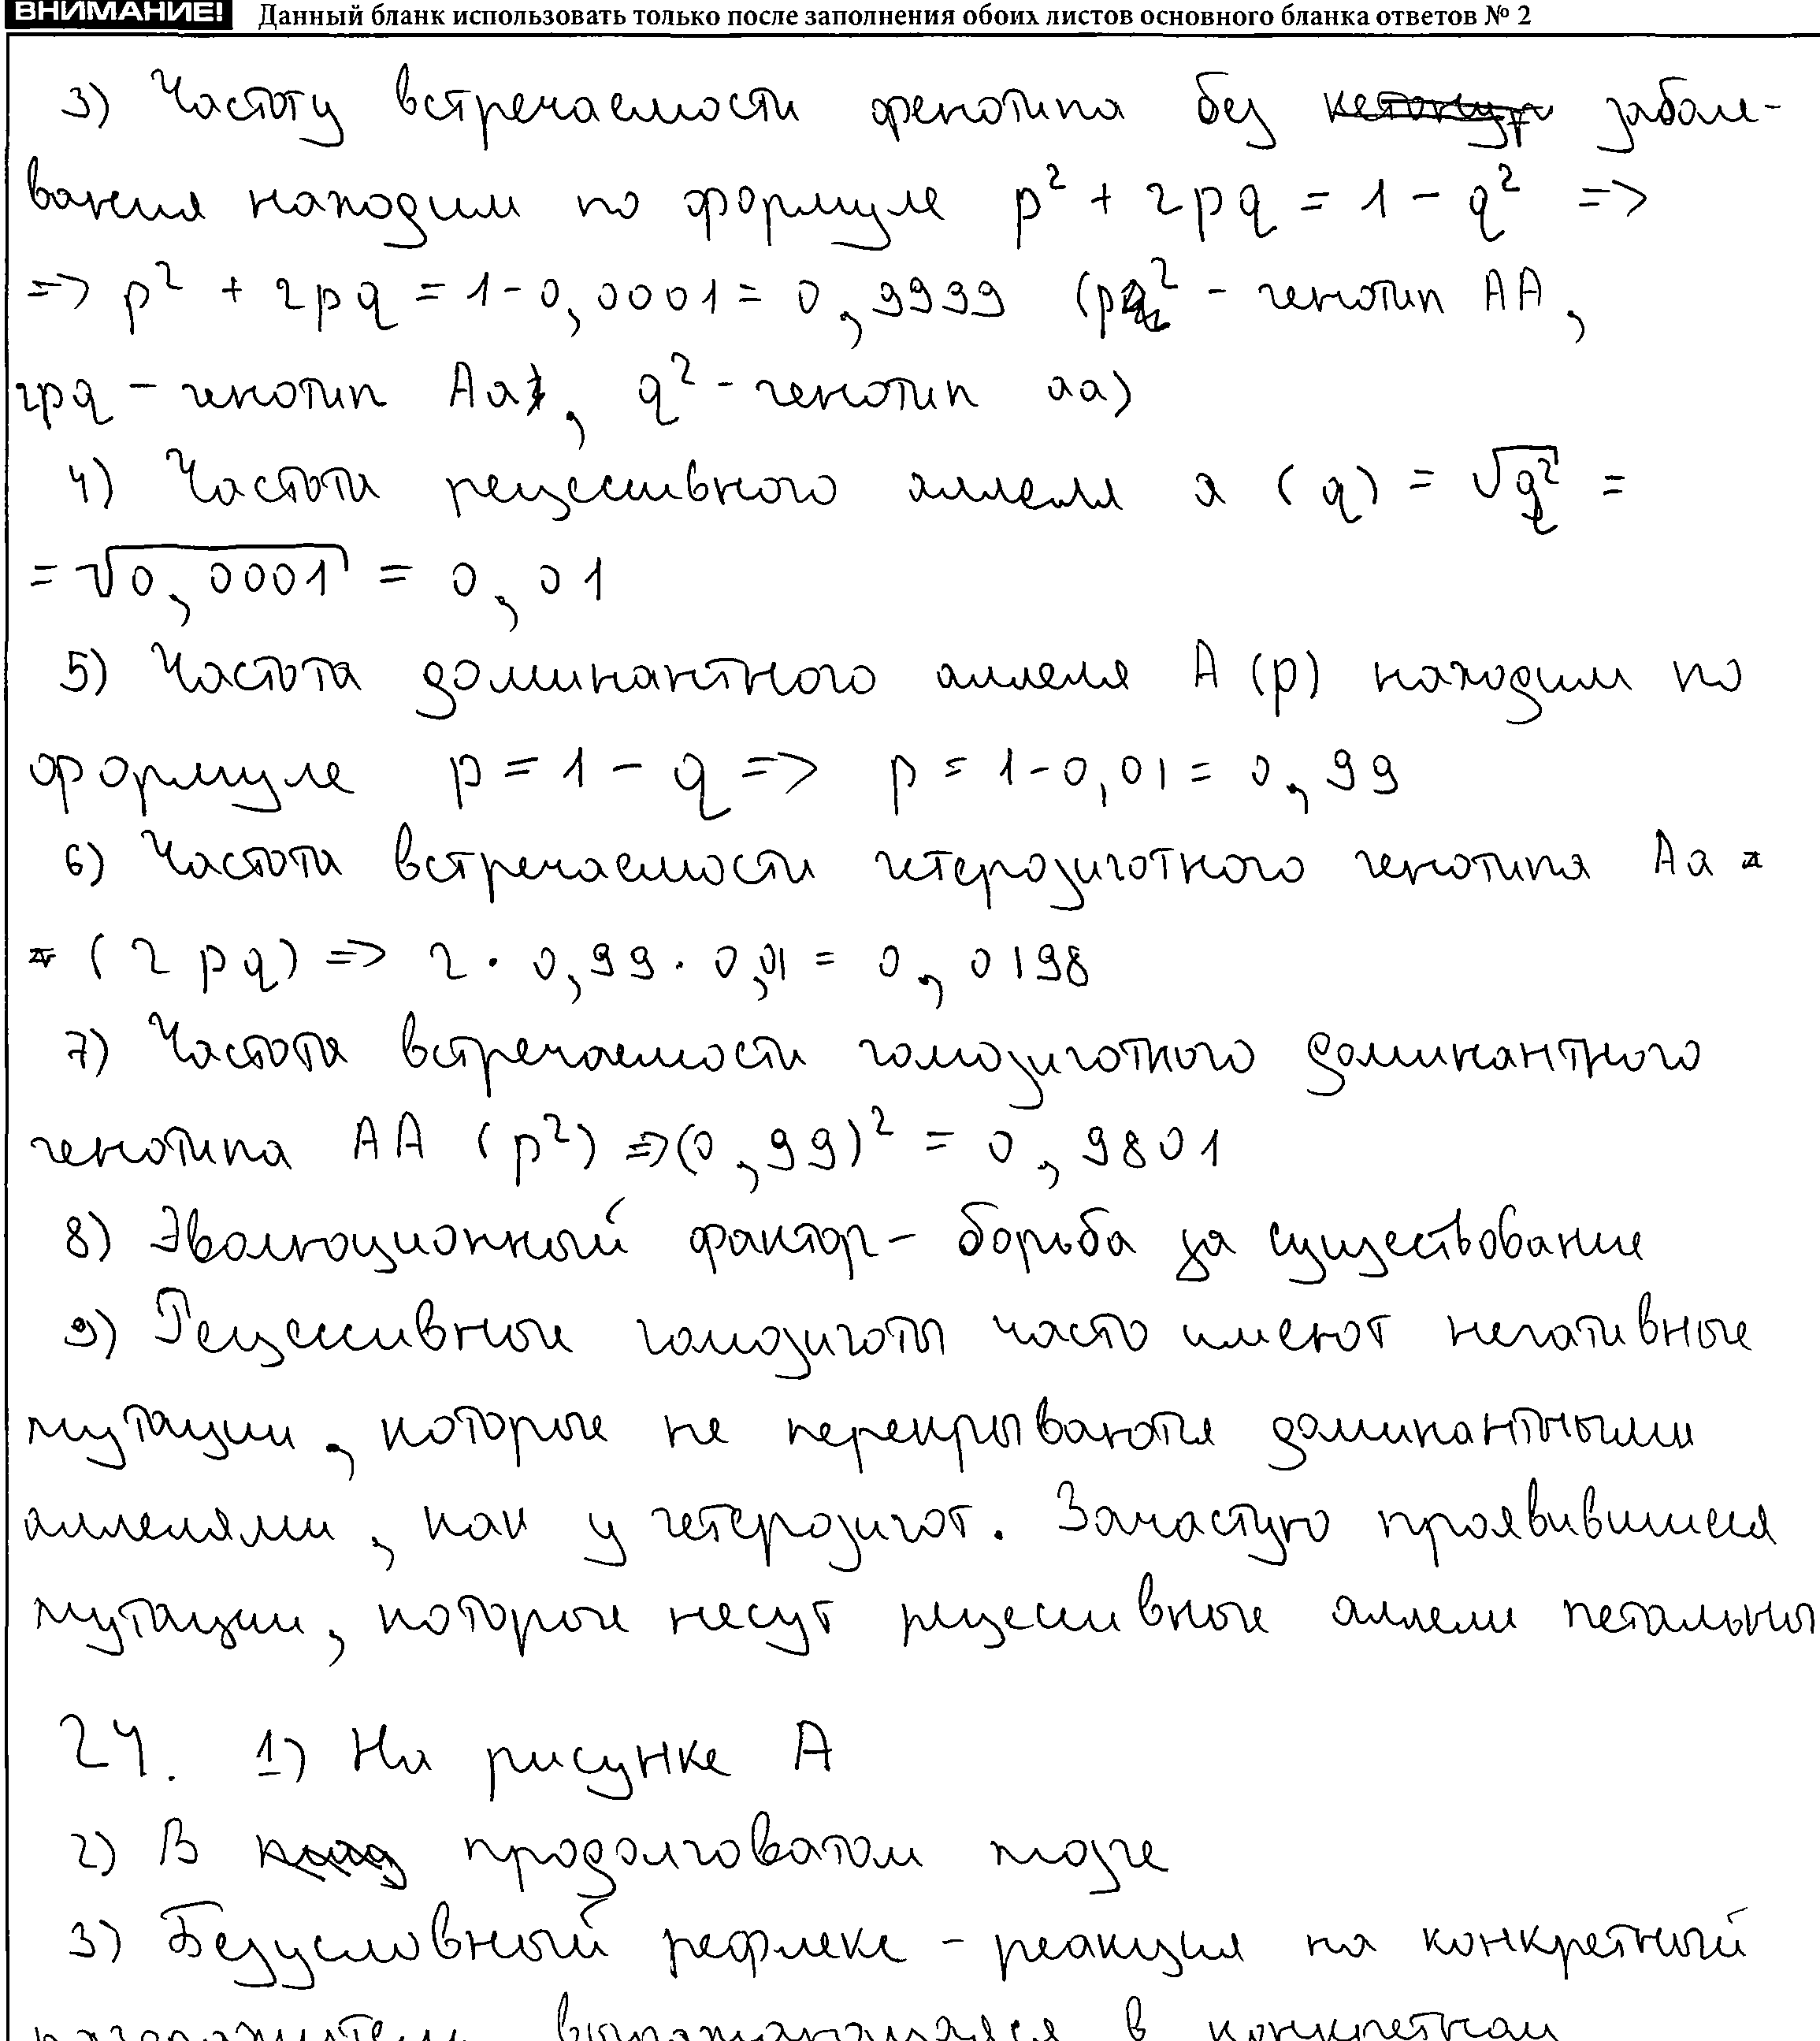 ВНИМАНИЕ! Данный бланк использовать только после заполнения обоих листов основного бланка ответов № 2
3) Частоту встречаемости фенотипа без заболе-
вания находим по формуле p² + 2pq = 1 - q² =>
=> p² + 2pq = 1 - 0,0001 = 0,9999 (p² - генотип АА,
2pq - генотип Аа, q² - генотип аа)
4) Частота рецессивного аллеля а (q) = √q² =
= √0,0001 = 0,01
5) Частота доминантного аллеля А (p) находим по
формуле p = 1 - q => p = 1 - 0,01 = 0,99
6) Частота встречаемости гетерозиготного генотипа Аа =
= (2pq) => 2 · 0,99 · 0,01 = 0,0198
7) Частота встречаемости гомозиготного доминантного
генотипа АА (p²) => (0,99)² = 0,9801
8) Эволюционный фактор - борьба за существование
9) Рецессивные гомозиготы часто имеют негативные
мутации, которые не перекрываются доминантными
аллелями, как у гетерозигот. Зачастую проявившиеся
мутации, которые несут рецессивные аллели летальны
24. 1) На рисунке А
2) В продолговатом мозге
3) Безусловный рефлекс - реакция на конкретный